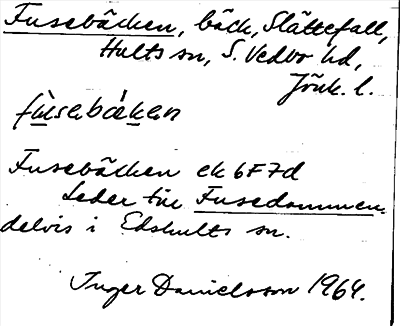 Fusebäcken, bäck, Slättefall,
Hults sn, S. Vedbo hd,
Jönk. l.
fùsebä́ken
Fusebäcken ek 6F7d
Leder till Fusedammen.
delvis i Edshults sn.
Inger Danielsson 1964.